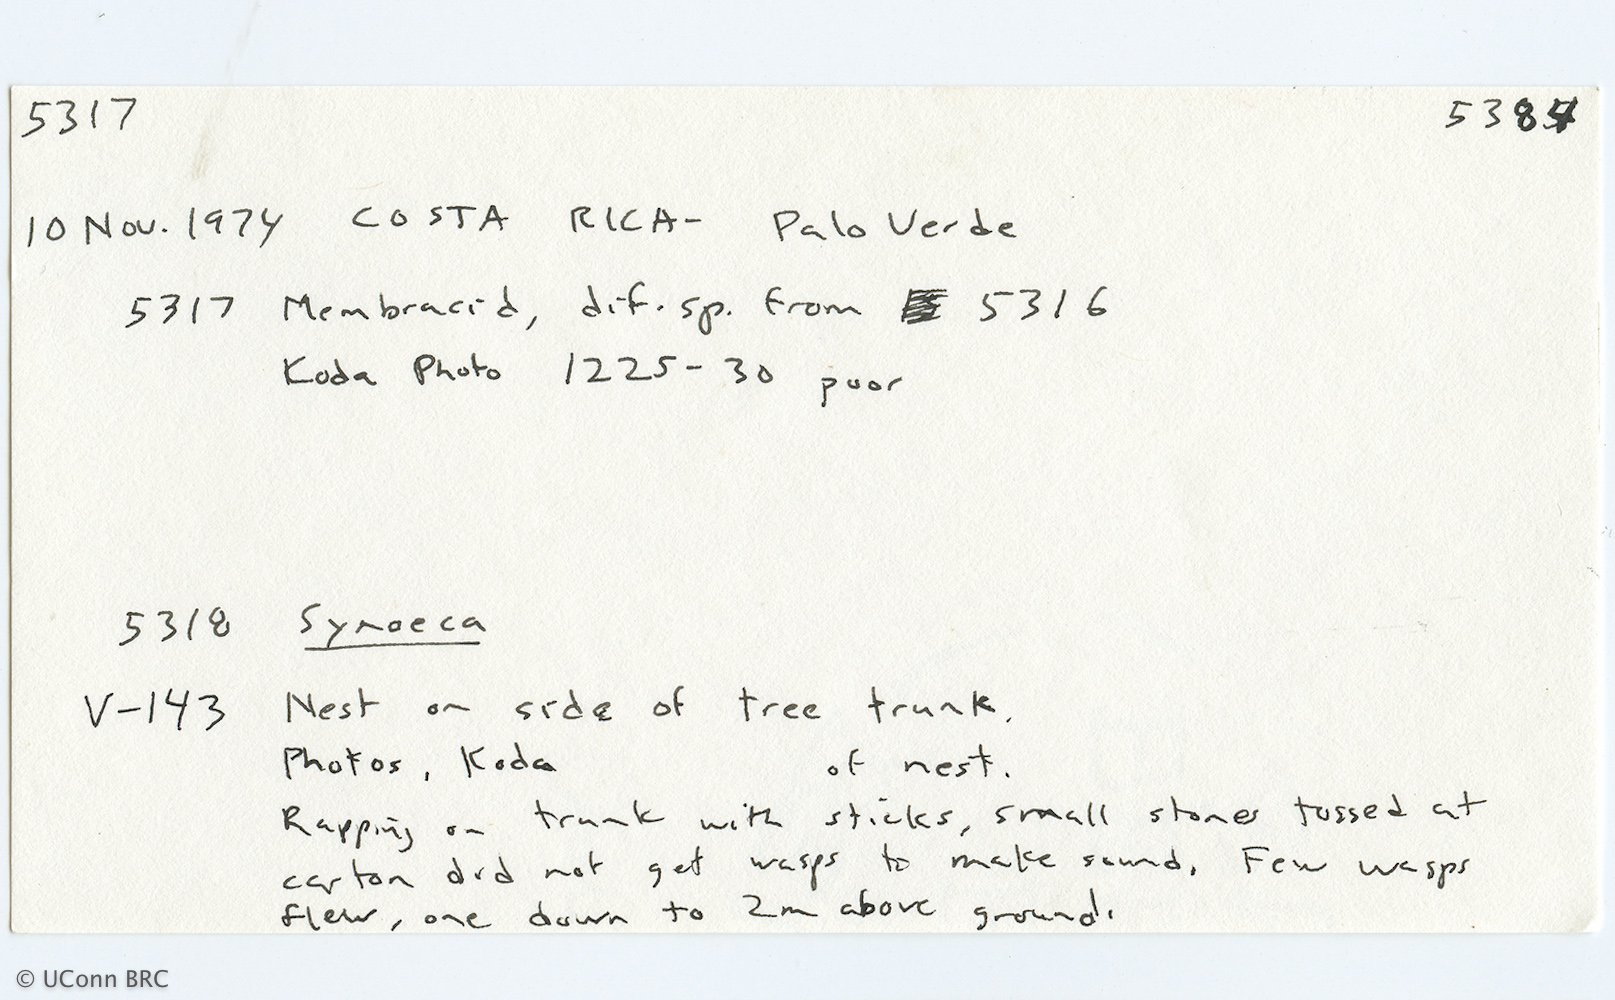 5317 5384
10 Nov. 1974 COSTA RICA- Palo Verde
5317 Membracid, dif. sp. from 5316
Koda Photo 1225-30 poor
5318 Synoeca
V-143 Nest on side of tree trunk.
Photos, Koda of nest.
Rapping on trunk with sticks, small stones tossed at
carton did not get wasps to make sound. Few wasps
flew, one down to 2m above ground.
© UConn BRC